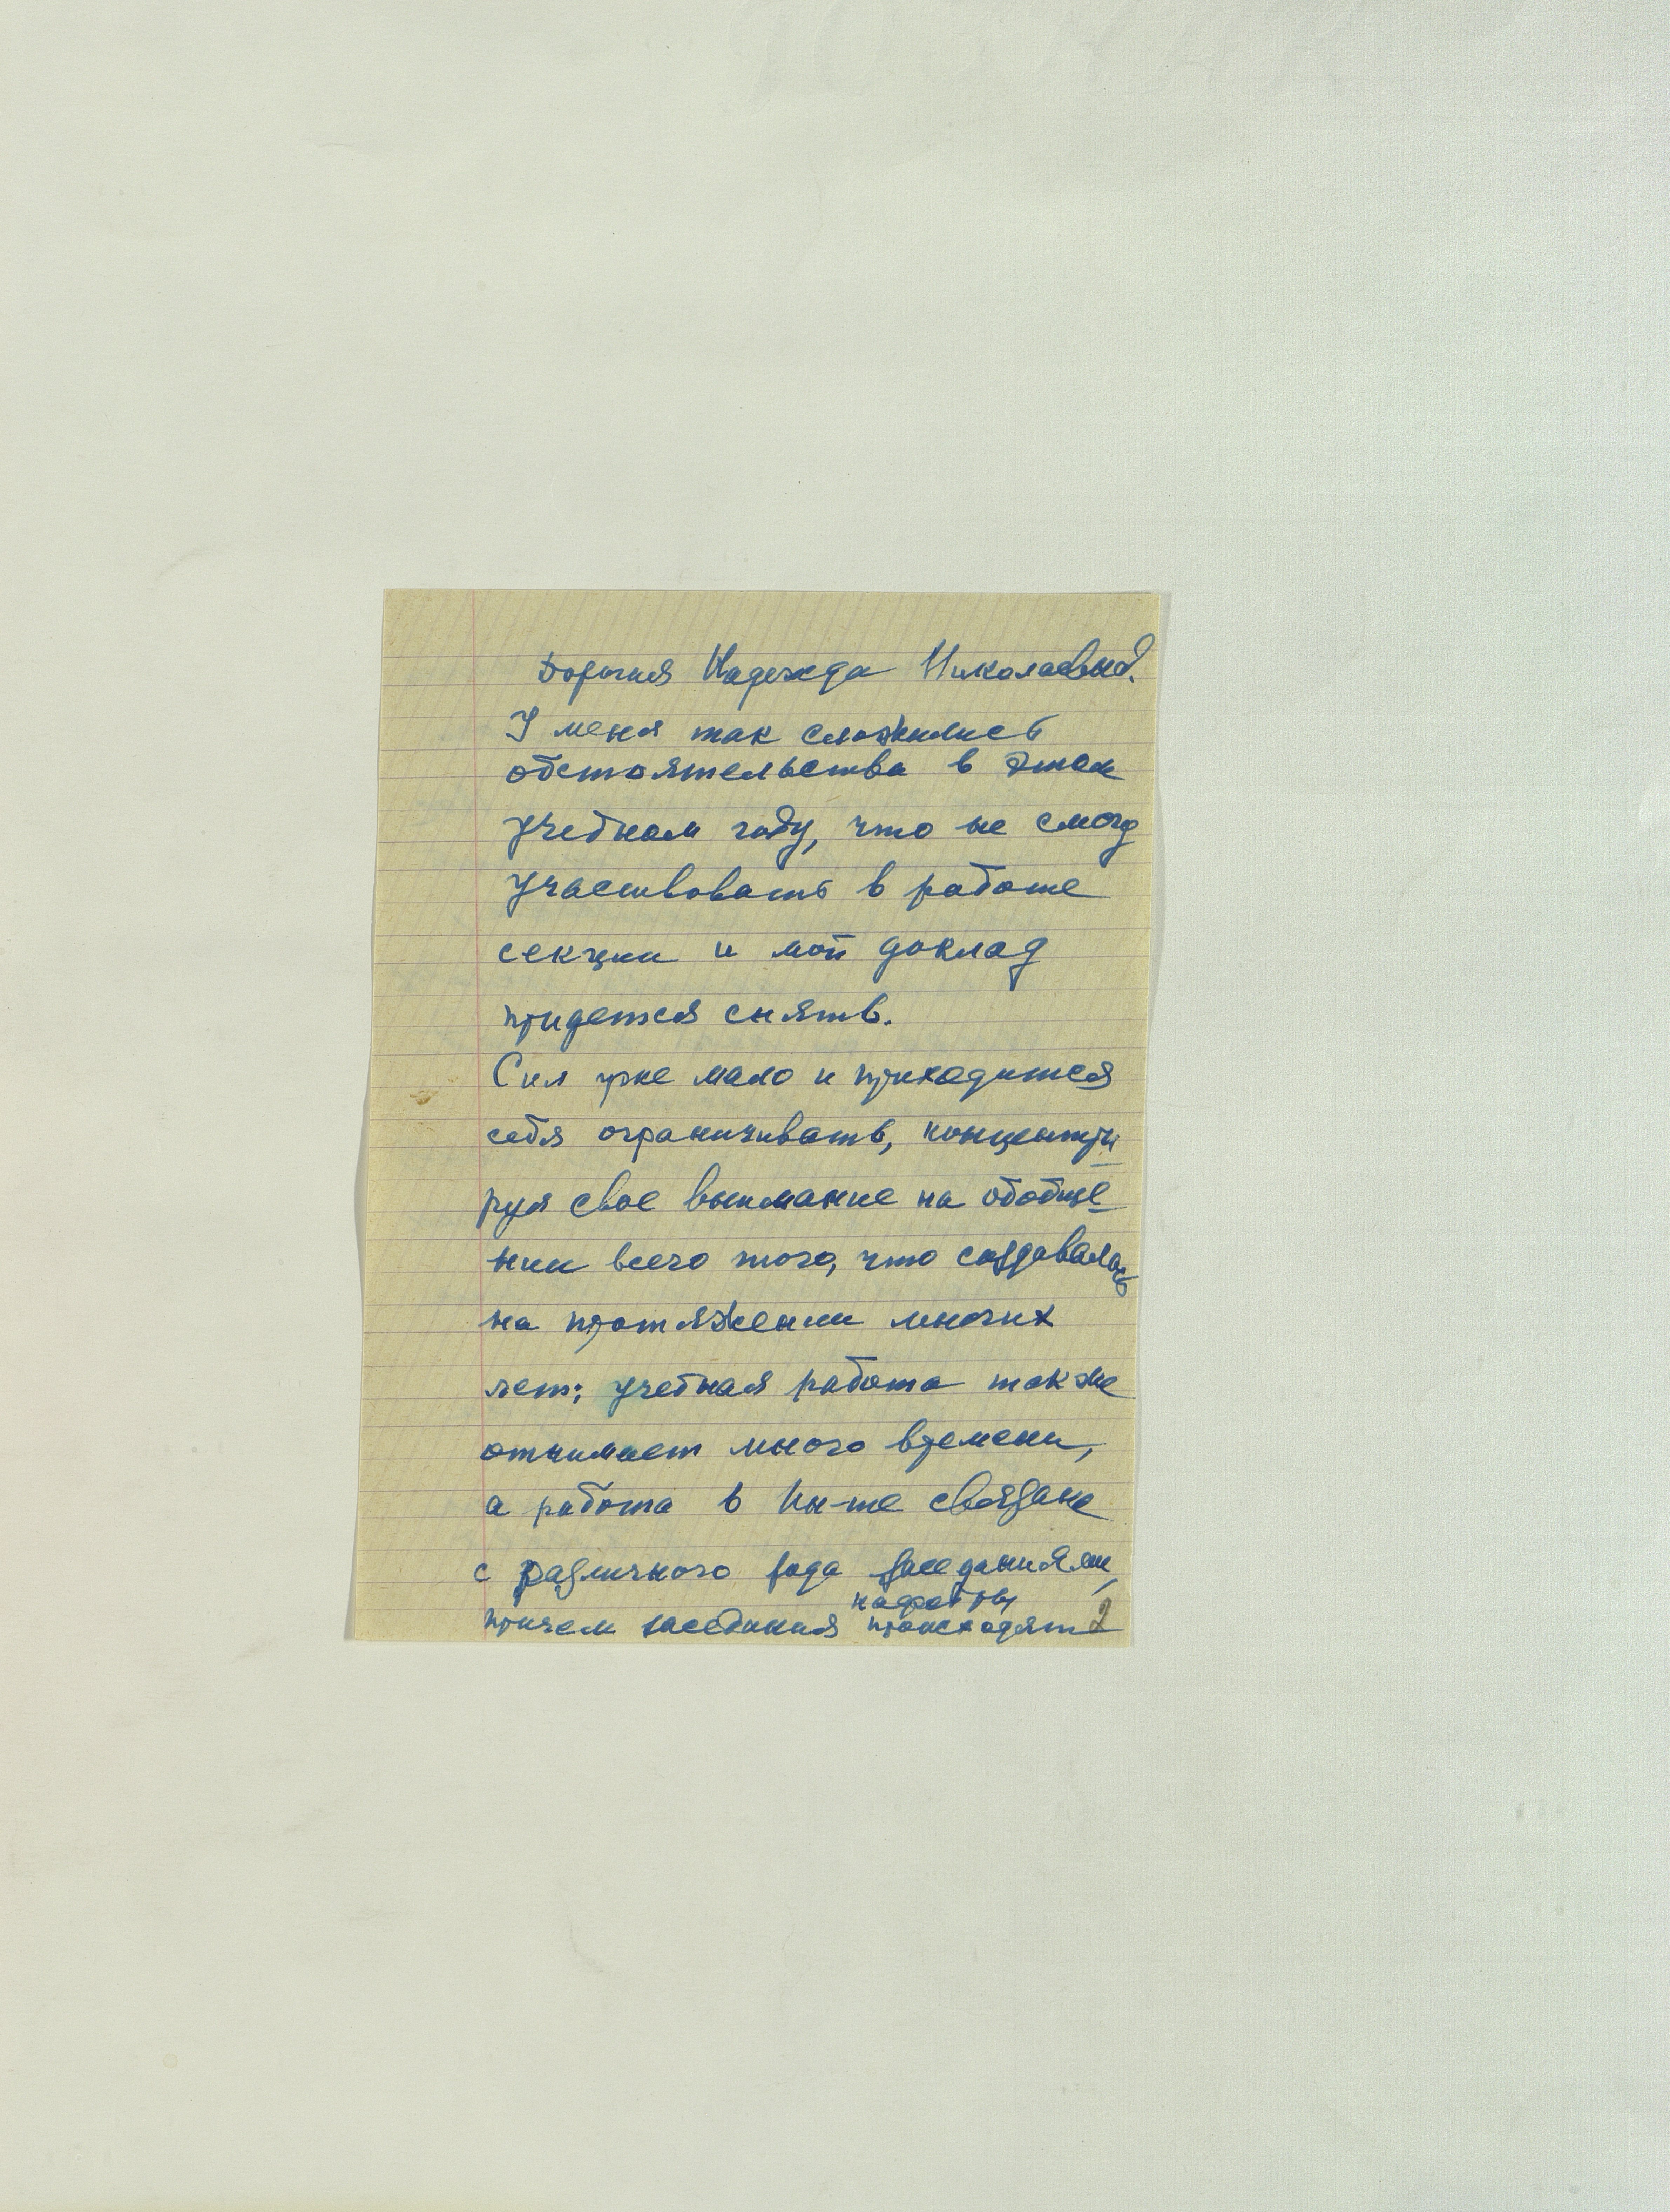 Дорогая Надежда Николаевна.
У меня так сложились
обстоятельства в этом
учебном году, что не смогу
участвовать в работе
секции и мой доклад
придется снять.
Сил уже мало и приходится
себя ограничивать, концентри
руя свое внимание на обобще
нии всего того, что создавалось
на протяжении многих
лет; учебная работа также
отнимает много времени,
а работа в Ин-те связана
с различного рода заседаниями,
причем заседания происходят
2